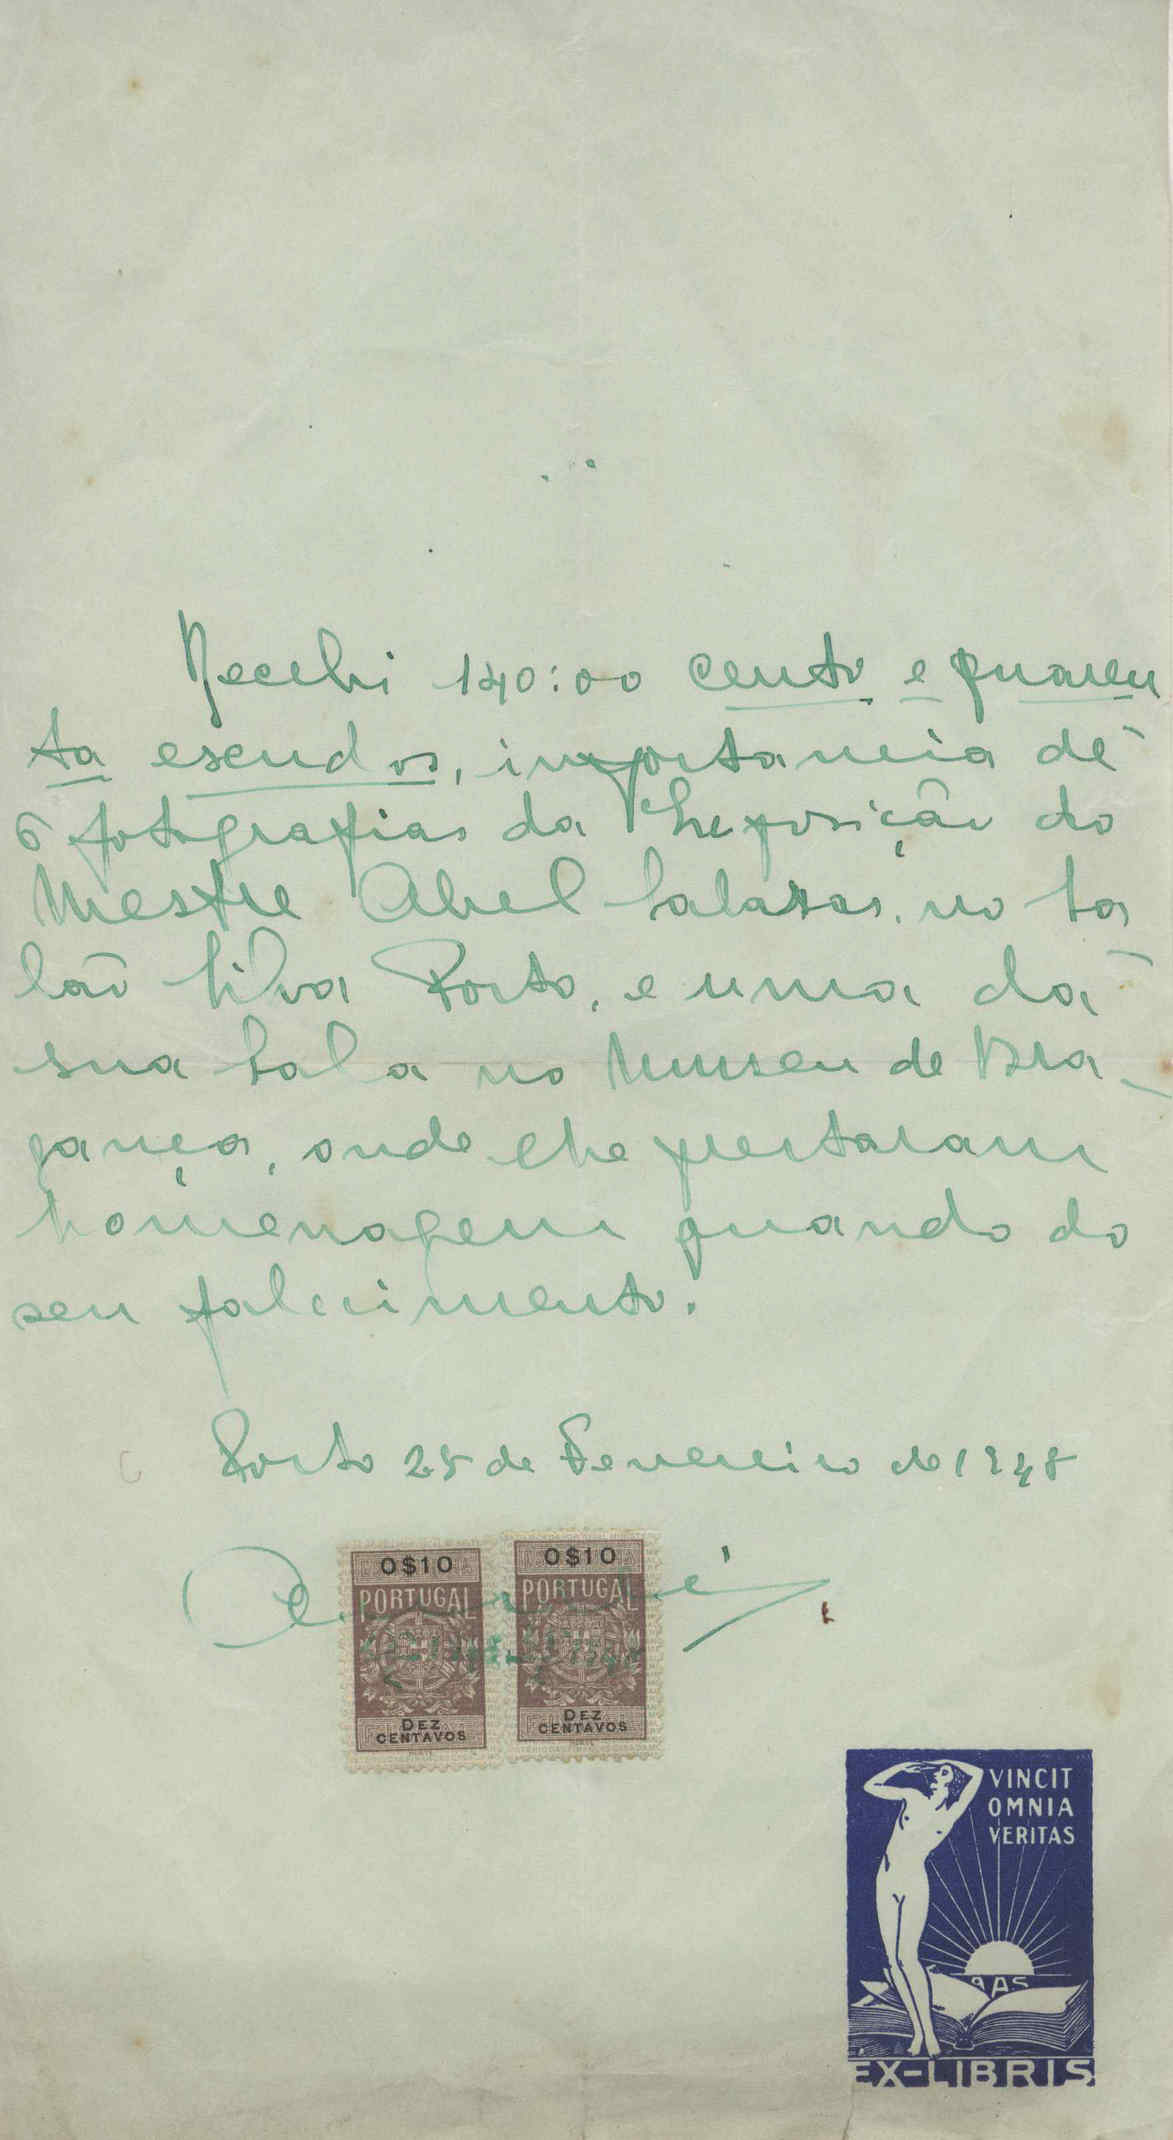 Recebi 140:00 cento e quaren
ta escudos, importancia de
6 fotografias da Exposição do
Mestre Abel Salazar, no Sa
lão Silva Porto, e uma da
sua Sala no Museu de Bra-
gança, onde lhe prestaram
homenagem quando do
seu falecimento.
Porto 25 de Fevereiro de 1948
0$10
PORTUGAL
DEZ
CENTAVOS
0$10
PORTUGAL
DEZ
CENTAVOS
VINCIT
OMNIA
VERITAS
AAS
EX-LIBRIS